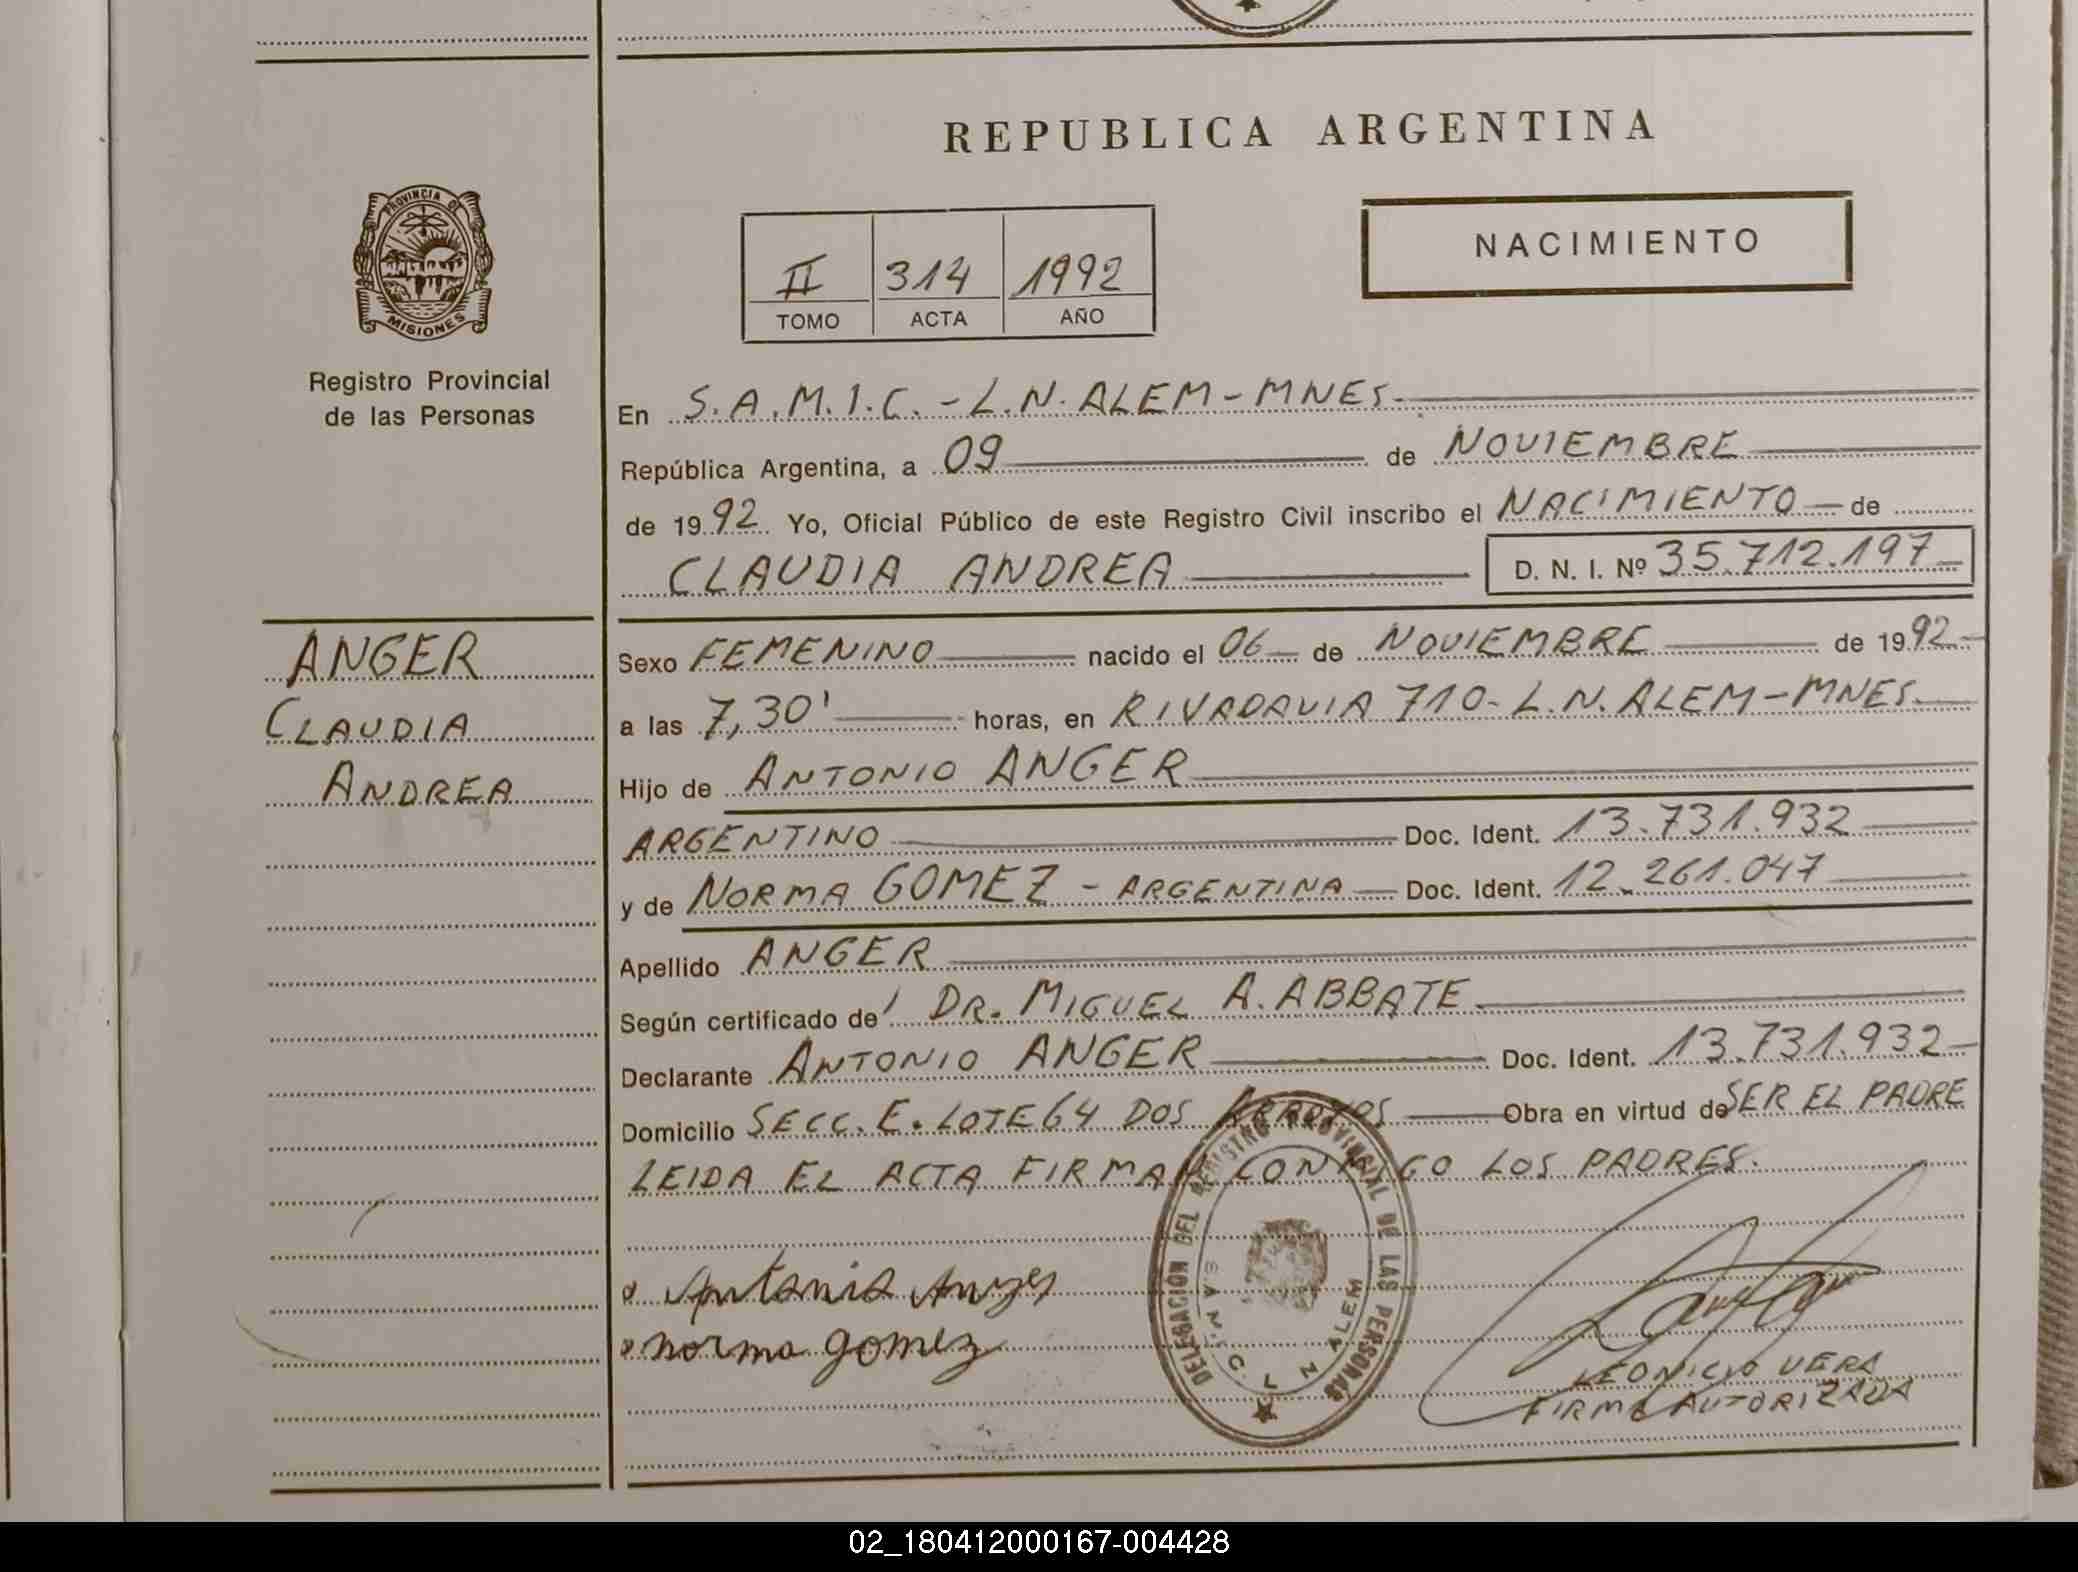 REPUBLICA ARGENTINA
PROVINCIA DE
MISIONES
Registro Provincial
de las Personas
II 314 1992
TOMO ACTA AÑO
NACIMIENTO
En S.A.M.I.C. - L.N. ALEM - MNES.
República Argentina, a 09 de NOVIEMBRE
de 1992 Yo, Oficial Público de este Registro Civil inscribo el NACIMIENTO de
CLAUDIA ANDREA D. N. I. Nº 35.712.197
ANGER
CLAUDIA
ANDREA
Sexo FEMENINO nacido el 06 de NOVIEMBRE de 1992
a las 7,30' horas, en RIVADAVIA 710 - L.N. ALEM - MNES.
Hijo de ANTONIO ANGER
ARGENTINO Doc. Ident. 13.731.932
y de NORMA GOMEZ - ARGENTINA Doc. Ident. 12.261.047
Apellido ANGER
Según certificado de DR. MIGUEL A. ABBATE.
Declarante ANTONIO ANGER Doc. Ident. 13.731.932
Domicilio SECC. E. LOTE 64 DOS ARROYOS Obra en virtud de SER EL PADRE
LEIDA EL ACTA FIRMAN CONMIGO LOS PADRES.
Antonio Anger
norma gomez
DELEGACION DEL REGISTRO PROVINCIAL DE LAS PERSONAS
L N ALEM
LEONICIO VERA
FIRMA AUTORIZADA
02_180412000167-004428